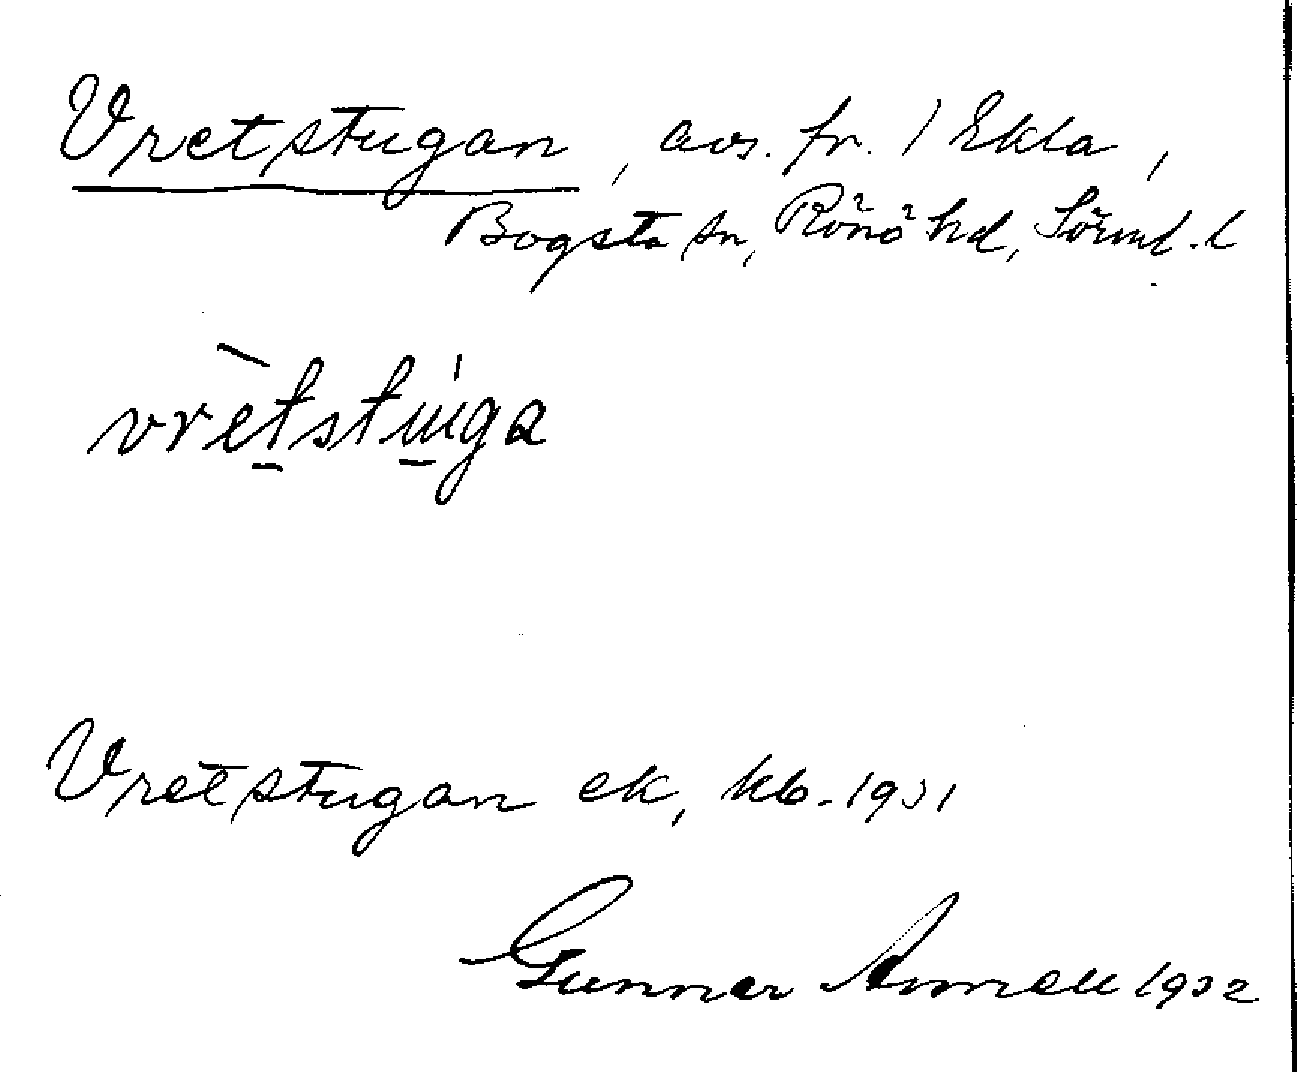 Vretstugan, avs. fr. 1 Ekla,
Bogsta sn, Rönö hd, Sörml. l
vrètstuga
Vretstugan ek, kb. 1931
Gunnar Annell 1932